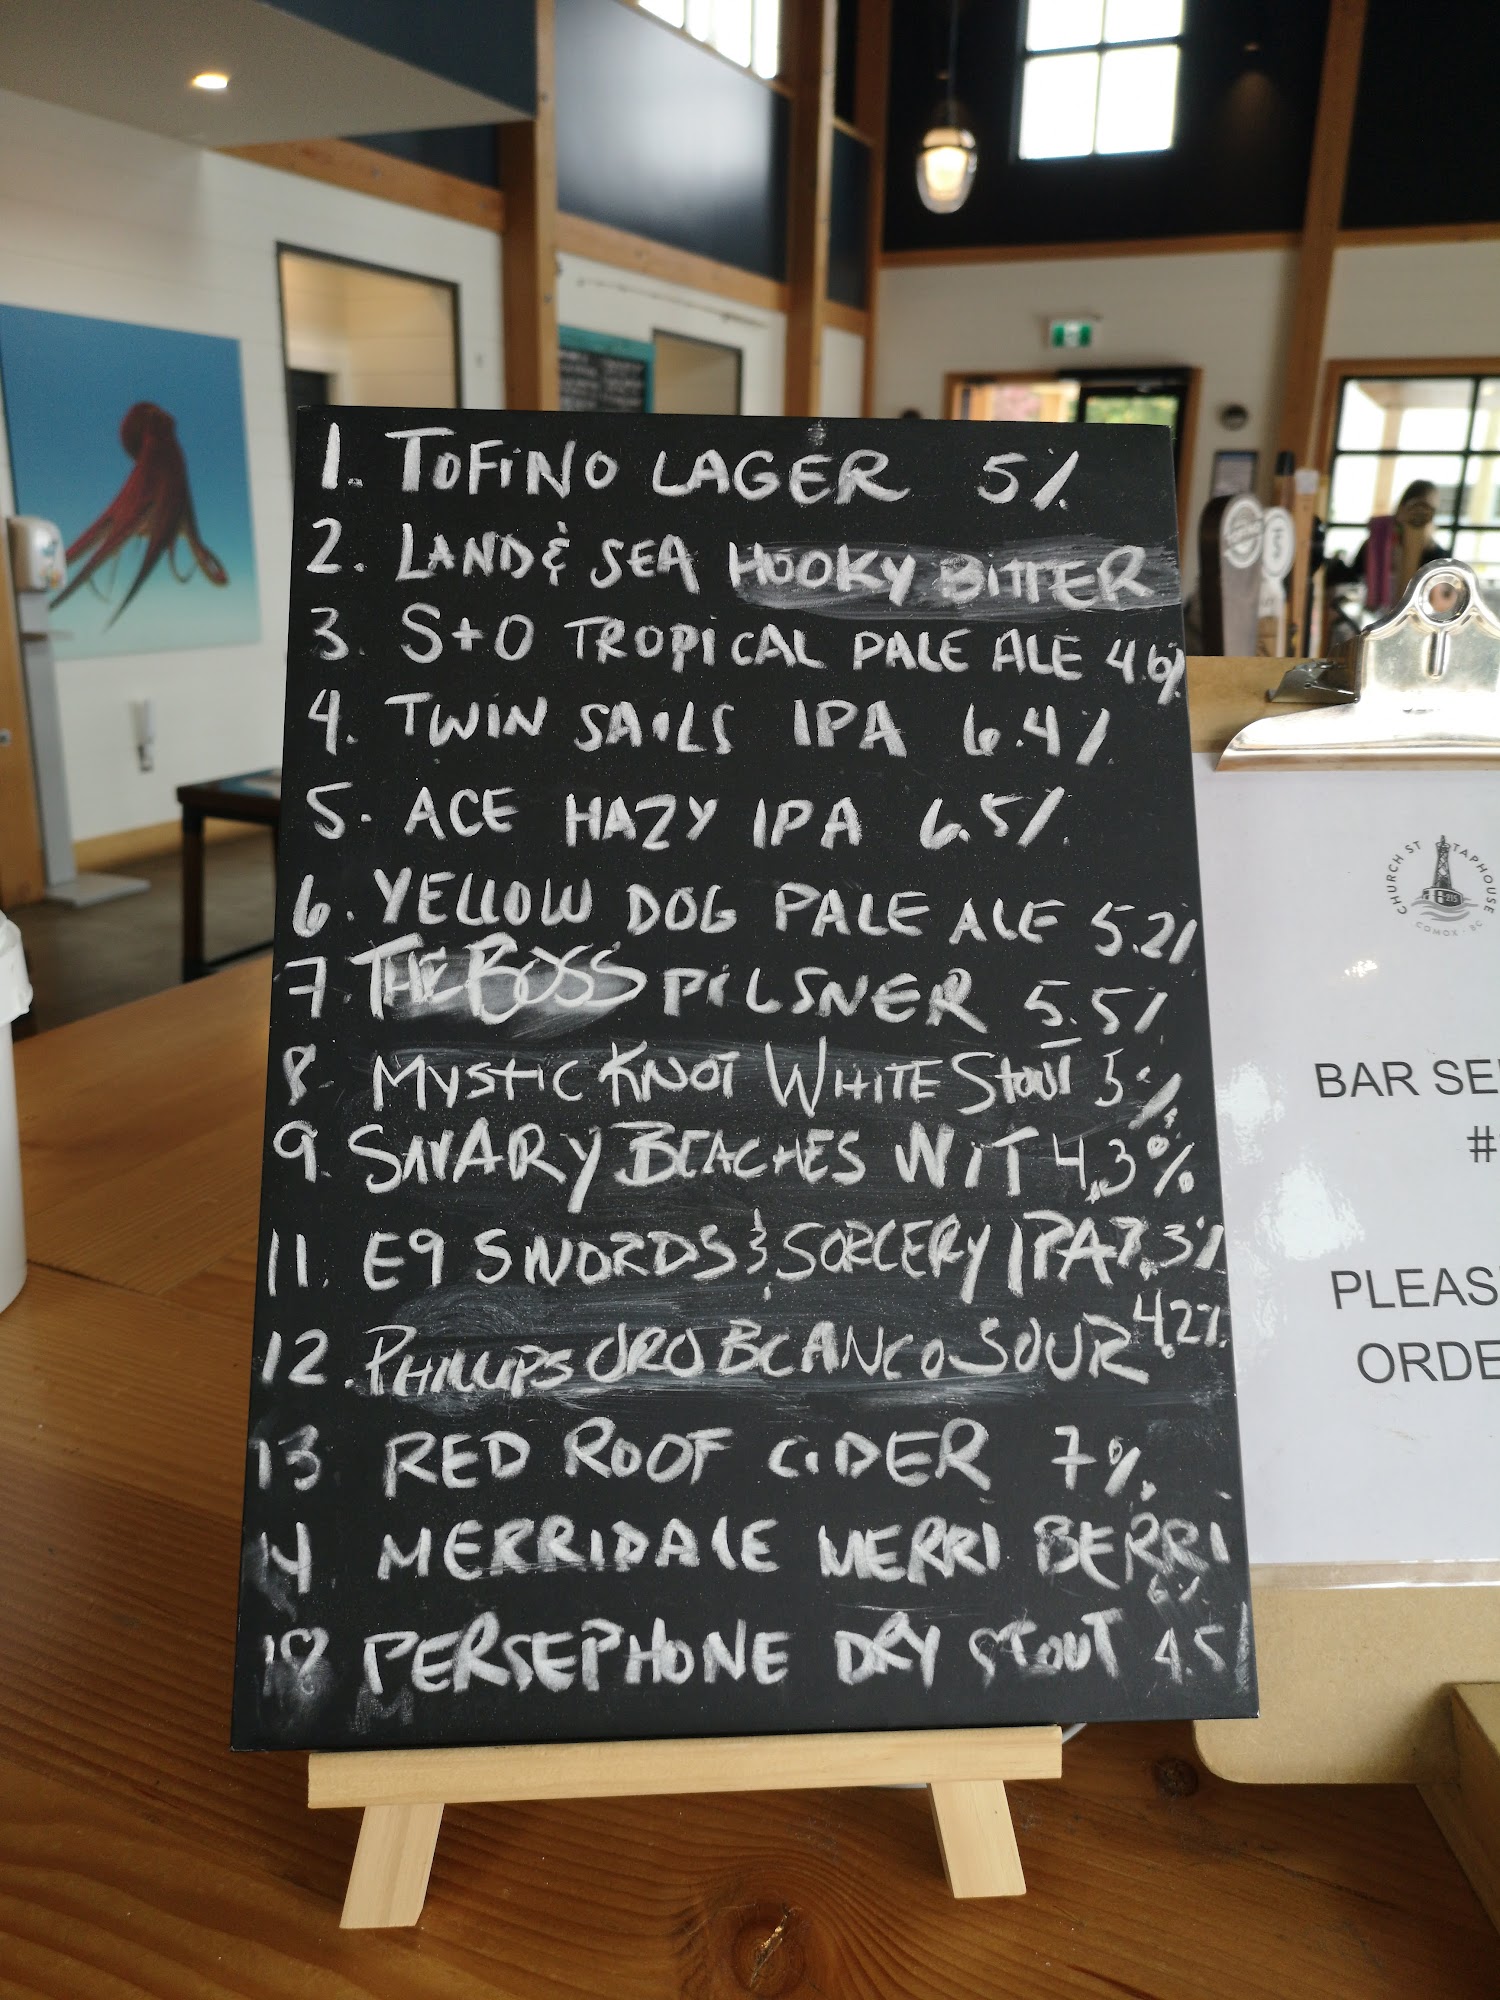 1. TOFINO LAGER 5%
2. LAND & SEA HOOKY BITTER
3. S+O TROPICAL PALE ALE 4.6%
4. TWIN SAILS IPA 6.4%
5. ACE HAZY IPA 6.5%
6. YELLOW DOG PALE ALE 5.2%
7. THE BOSS PILSNER 5.5%
8. MYSTIC KNOT WHITE STOUT 5%
9. SAVARY BEACHES WIT 4.3%
11. E9 SWORDS & SORCERY IPA 7.3%
12. PHILLIPS ORO BLANCO SOUR 4.2%
13 RED ROOF CIDER 7%
14 MERRIDALE MERRI BERRI
6%
PERSEPHONE DRY STOUT 4.5
CHURCH ST TAPHOUSE
215
COMOX · BC
BAR SE
#
PLEAS
ORDE